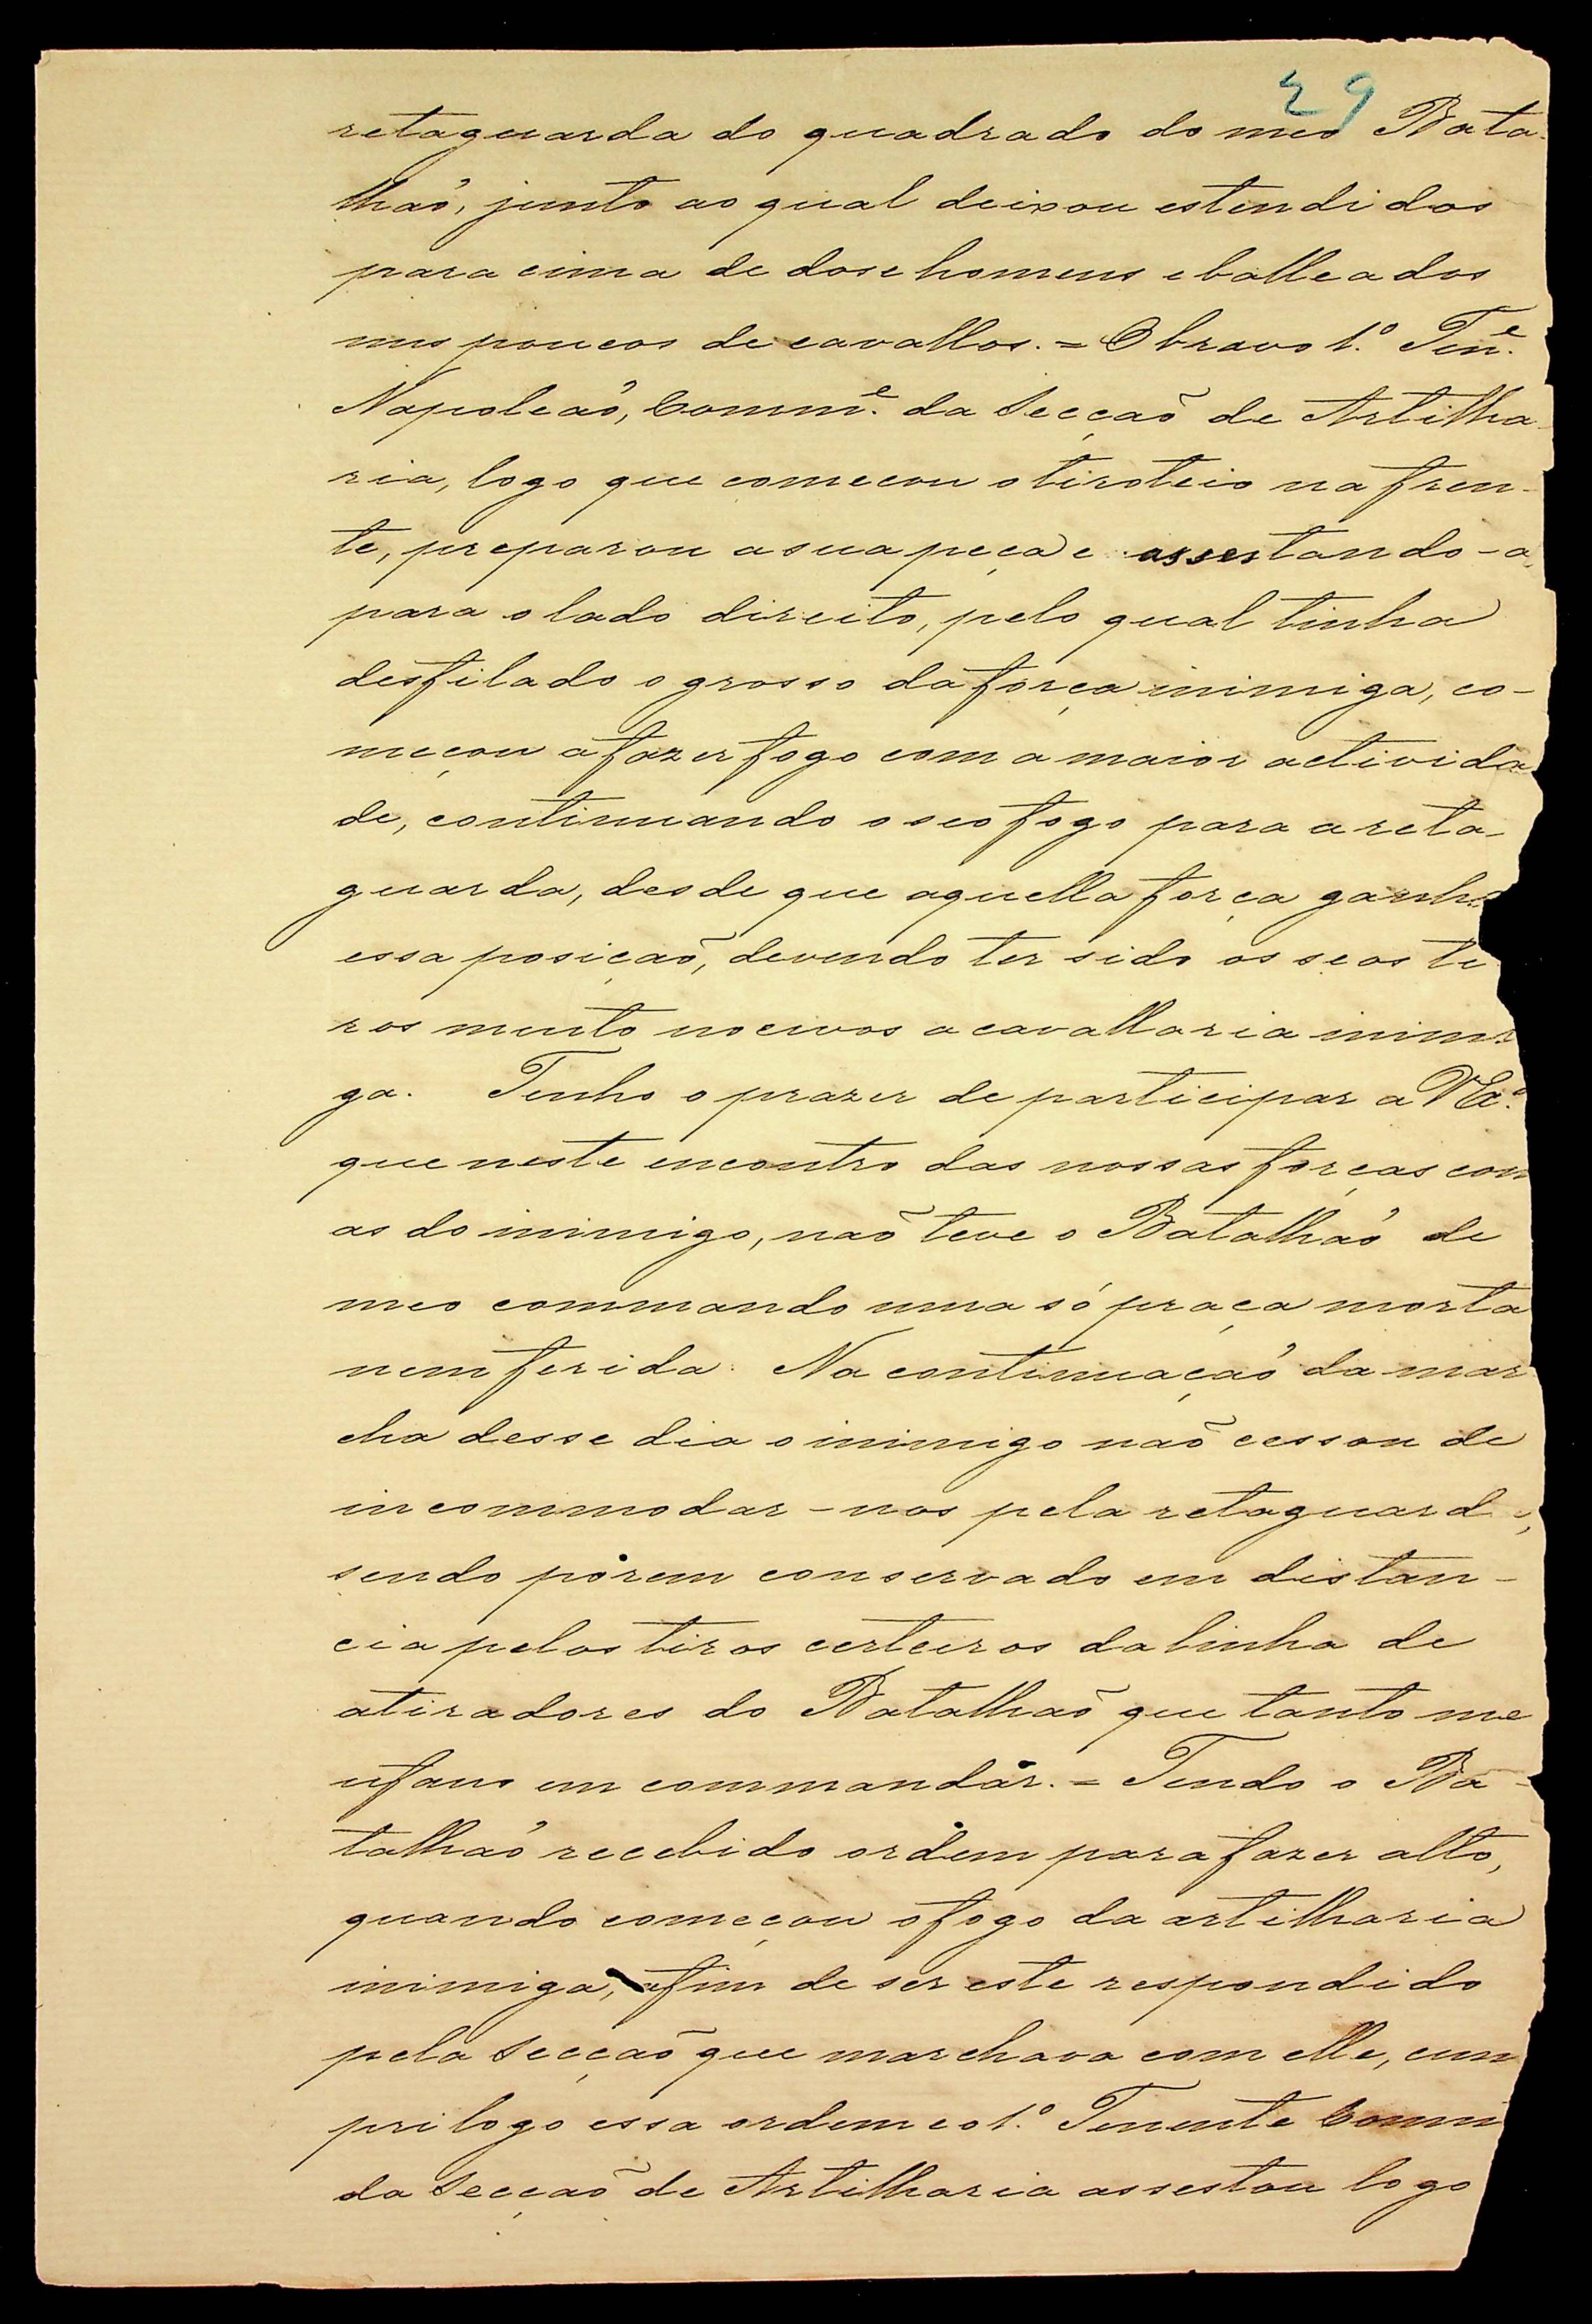 29
retaguarda do quadrado do meo Bata-
lhaõ, junto ao qual deixou estendidos
para cima de dose homens e balleados
uns poucos de cavallos. = O bravo 1.º Ten.e
Napoleaõ, Comm.e da Secçaõ de Artilha-
ria, logo que comecou o tiroteio na fren-
te, preparou a sua peça e assestando-a,
para o lado direito, pelo qual tinha
desfilado o grosso da força inimiga, co-
meçou a fazer fogo com a maior activida
de, continuando o seo fogo para a reta-
guarda, desde que aquella força ganh
essa posiçaõ, devendo ter sido os seos ti
ros muito nocivos a cavallaria inimi
ga. Tenho o prazer de participar a VEx.ª
que neste encontro das nossas forças com
as do inimigo, naõ teve o Batalhaõ de
meo commando uma só praça morta
nem ferida. Na continuaçaõ da mar
cha desse dia o inimigo naõ cessou de
incommodar-nos pela retaguarda,
sendo porem conservado em distan-
cia pelos tiros certeiros da linha de
atiradores do Batalhaõ que tanto me
ufano em commandar. = Tendo o Ba-
talhaõ recebido ordem para fazer alto,
quando começou o fogo da artilharia
inimiga, afim de ser este respondido
pela Secçaõ que marchava com elle, cum
pri logo essa ordem e o 1.º Tenente Comm
da Secçaõ de Artilharia assestou logo